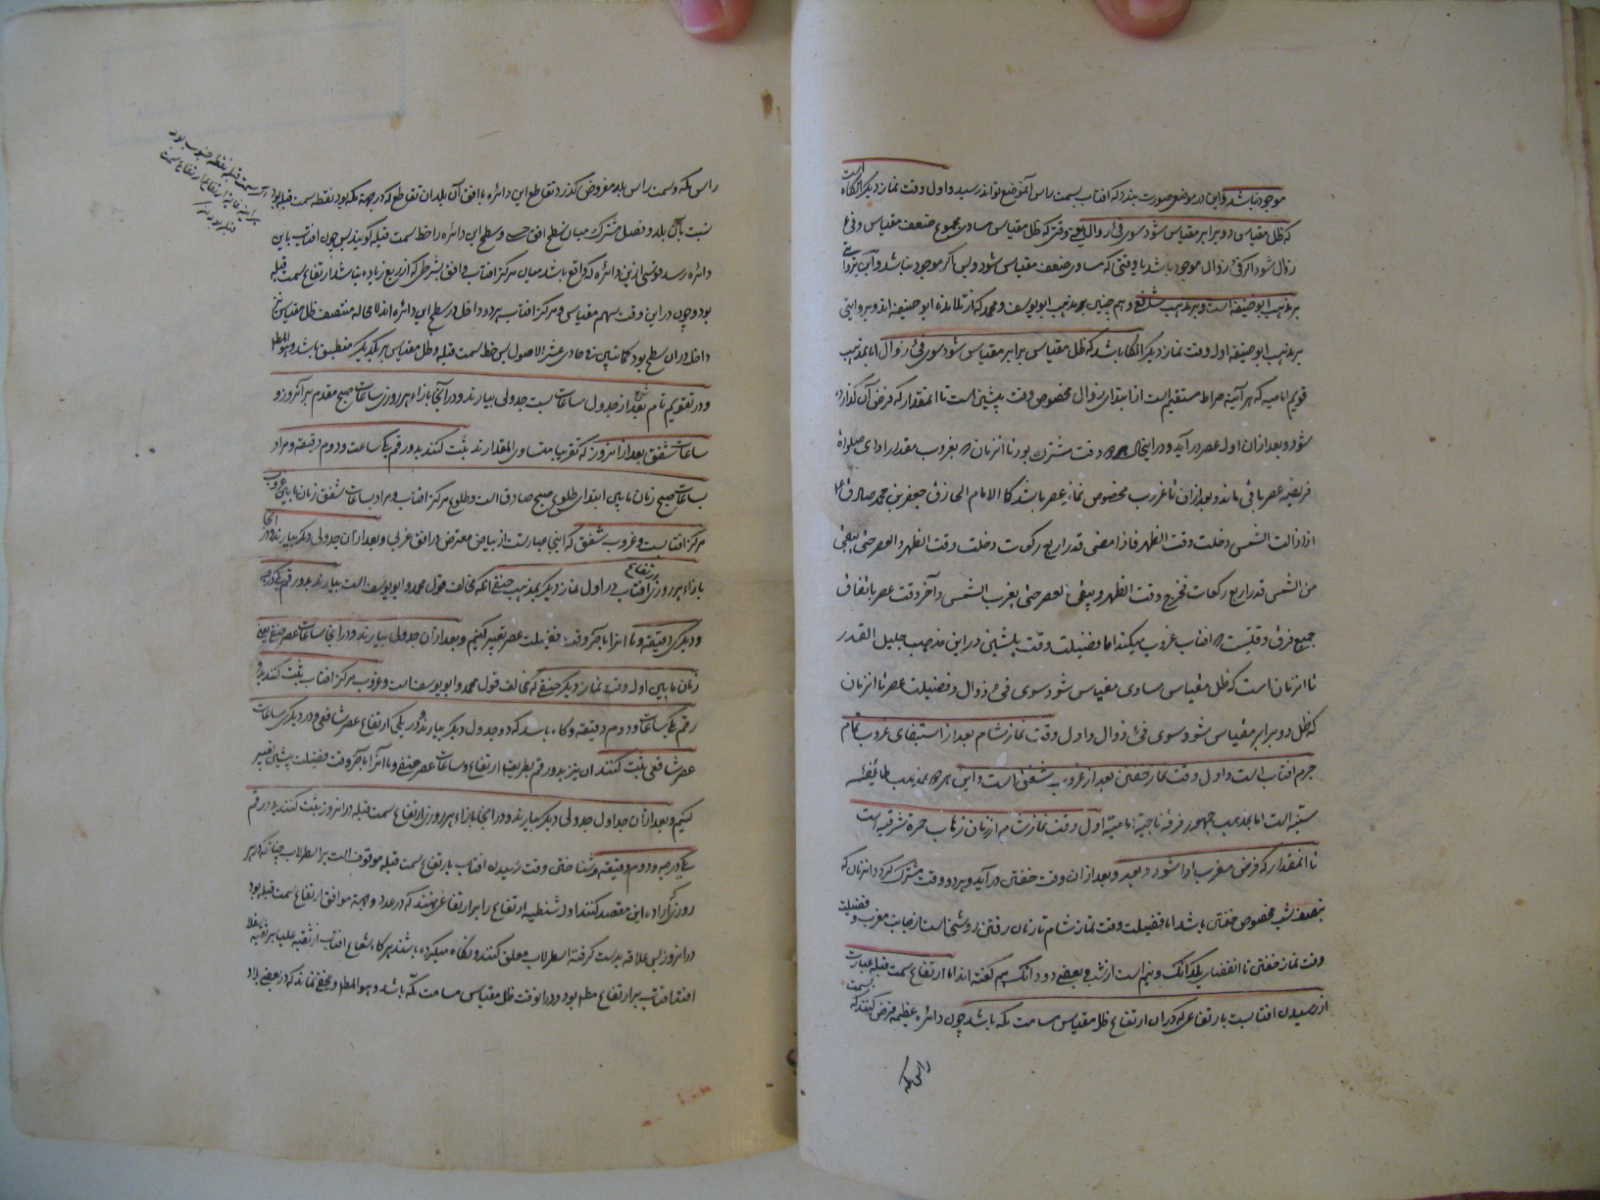 موجود نباشد و این در موضعی صورت بندد که افتاب بسمت راس آنموضع تواند رسید و اول وقت نماز دیگر آنگاه است
که ظل مقیاس دو برابر مقیاس شود سوی فی زوال یعنی وقتی که ظل مقیاس مساوی مجموع ضعف مقیاس و فی
زوال شود اگر فی زوال موجود باشد یا وقتی که مساوی ضعف مقیاس شود و بس اگر موجود نباشد و این
بر مذهب ابو حنیفه است و بر مذهب شافعی و هم چنین بمذهب ابو یوسف و محمد که از تلامذه ابو حنیفه اند و بروایتی
بر مذهب ابو حنیفه اول وقت نماز دیگر آنگاه باشد که ظل مقیاس برابر مقیاس شود سوی فی زوال اما بمذهب
قویم امامیه که هر آینه صراط مستقیم است از ابتدای زوال مخصوص وقت پیشین است تا انمقدار که فرض آن گذارده
شود و بعد ازان اول عصر درآید و در اینحال وقت مشترک بود تا انزمان که بغروب مقدار ادای صلواة
فریضه عصر باقی ماند و بعد ازان تا غروب مخصوص نماز عصر باشد کما الامام الحاذق جعفر بن محمد صادق ع
اذا زالت الشمس دخلت وقت الظهر فاذا مضی قدر اربع رکعات دخلت وقت الظهر و العصر حتی یبقی
من الشمس قدر اربع رکعات فخرج وقت الظهر و یبقی العصر حتی یغرب الشمس و آخر وقت عصر باتفاق
جمیع فرق وقتیست که افتاب غروب میکند اما فضیلت وقت پیشین در این مذهب جلیل القدر
تا انزمان است که ظل مقیاس مساوی مقیاس شود سوی فی زوال و فضیلت عصر تا انزمان
که ظل دو برابر مقیاس شود سوی فی زوال و اول وقت نماز شام بعد از استیفای غروب تمام
جرم افتاب است و اول وقت نماز خفتن بعد از غروب شفق است و این هر دو بمذهب طائفه
سنیه است اما بمذهب جمهور فرقه ناجیه امامیه اول وقت نماز شام از زمان ذهاب حمره مشرقیه است
تا انمقدار که فرض مغرب ادا شود و بعد و بعد ازان وقت خفتن درآید و هر دو وقت مشترک گردد تا انزمان که
بنصف شب مخصوص خفتن باشد اما فضیلت وقت نماز شام تا زمان رفتن روشنی است از جانب مغرب و فضیلت
وقت نماز خفتن تا انقضای یکدانک و نیم است از شب و بعضی دو دانک هم گفته اند اما ارتفاع سمت قبله عبارت
از رسیدن افتابست بارتفاعی که در ان ارتفاع ظل مقیاس مسامت مکه باشد چون دائره عظیمه فرض کنند که بسمت
راس مکه
راس مکه و سمت راس بلد مفروض گذرد تقاطع این دائره با افق آن بلد ان تقاطع که در جهة مکه بود نقطه سمت قبله بود
نسبت بآن بلد و فصل مشترک میان سطح افق حسی و سطح این دائره را خط سمت قبله گویند پس چون افتاب باین
دائره رسد قوسی ازین دائره که واقع باشد میان مرکز افتاب و افق بشرطی که از ربع زیاده نباشد ارتفاع سمت قبله
بود و چون در این وقت سهم مقیاس و مرکز افتاب هر دو داخل در سطح این دائره اند لا محاله منتصف ظل مقیاس نیز
داخل در ان سطح بود کما تبین فی حادی عشر الاصول پس خط سمت قبله و ظل مقیاس بر یکدیگر منطبق باشد و هو المط
و در تقویم تام بعد از جدول ساعات بست جدولی بیارند و در آنجا بازاء هر روزی ساعات صبح مقدم بر آنروز و
ساعات شفق بعد از انروز که تقریبا متساوی المقدارند ثبت کنند بدو رقم یکی ساعت و دوم دقیقه و مراد
بساعات صبح زمان مابین ابتدای طلوع صبح صادق است و طلوع مرکز افتاب و مراد بساعات شفق زمان مابین غروب
مرکز افتابست و غروب شفق که اینجا عبارت از بیاض معترض در افق غربی و بعد از آن جدولی دیگر بیارند و در انجا
بازاء هر روزی ارتفاع افتاب در اول نماز دیگر بمذهب حنفی انکه مخالف قول محمد و ابو یوسف است بیارند بدو رقم یکی درجه
و دیگری دقیقه و ما انرا باخر وقت فضیلت عصر تعبیر کنیم و بعد از آن جدولی بیارند و در انجا ساعات عصر حنفی یعنی
زمان مابین اول وقت نماز دیگر حنفی که مخالف قول محمد و ابو یوسف است و غروب مرکز افتاب ثبت کنند بدو
رقم یکی ساعات و دوم دقیقه و گاه باشد که دو جدول دیگر بیارند و در یکی ارتفاع عصر شافعی و در دیگری ساعات
عصر شافعی ثبت کنند ان نیز بدو رقم بطریق ارتفاع و ساعات عصر حنفی و ما آنرا باخر وقت فضیلت پیشین تعبیر
کنیم و بعد از ان جداول جدولی دیگر بیارند و در انجا بازاء هر روزی ارتفاع سمت قبله در انروز ثبت کنند بدو رقم
یکی درجه و دوم دقیقه و شناختن وقت رسیدن افتاب بارتفاع سمت قبله موقوف است بر اسطرلاب چنانکه در هر
روزی که اراده این مقصد کنند اول شظیه ارتفاع را بر ارتفاعی نهند که در عدد و جهة موافق ارتفاع سمت قبله بود
در انروز پس علاقه بدست گرفته اسطرلاب معلق کنند و نگاه میکرده باشند هرگاه شعاع افتاب از ثقبه علیا بر ثقبه سفلی
افتد افتاب بر ارتفاع مط بود و در انوقت ظل مقیاس مسامت مکه باشد و هو المط و مخفی نماند که در بعضی بلاد